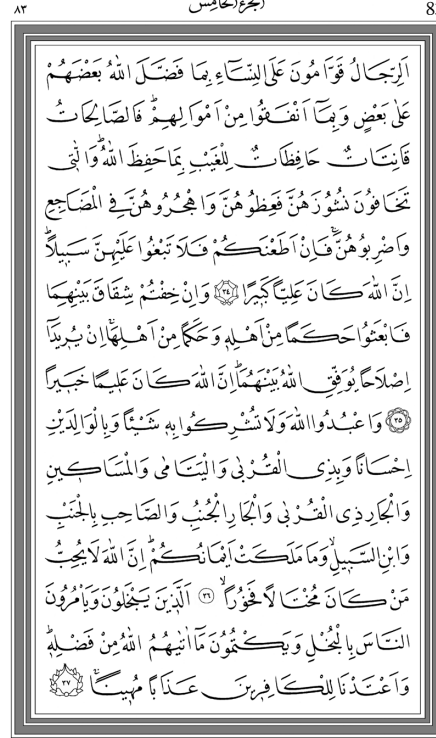 ٨٣ الجزء الخامس 8
اَلرِّجَالُ قَوَّامُونَ عَلَى النِّسَٓاءِ بِمَا فَضَّلَ اللّٰهُ بَعْضَهُمْ
عَلٰى بَعْضٍ وَبِمَٓا اَنْفَقُوا مِنْ اَمْوَالِهِمْۜ فَالصَّالِحَاتُ
قَانِتَاتٌ حَافِظَاتٌ لِلْغَيْبِ بِمَا حَفِظَ اللّٰهُۜ وَالّٰتٖى
تَخَافُونَ نُشُوزَهُنَّ فَعِظُوهُنَّ وَاهْجُرُوهُنَّ فِى الْمَضَاجِعِ
وَاضْرِبُوهُنَّۚ فَاِنْ اَطَعْنَكُمْ فَلَا تَبْغُوا عَلَيْهِنَّ سَبٖيلًاۜ
اِنَّ اللّٰهَ كَانَ عَلِيًّا كَبٖيرًا ﴿٣٤﴾ وَاِنْ خِفْتُمْ شِقَاقَ بَيْنِهِمَا
فَابْعَثُوا حَكَمًا مِنْ اَهْلِهٖ وَحَكَمًا مِنْ اَهْلِهَاۚ اِنْ يُرٖيدَٓا
اِصْلَاحًا يُوَفِّقِ اللّٰهُ بَيْنَهُمَاۜ اِنَّ اللّٰهَ كَانَ عَلٖيمًا خَبٖيرًا
﴿٣٥﴾ وَاعْبُدُوا اللّٰهَ وَلَا تُشْرِكُوا بِهٖ شَيْـًٔا وَبِالْوَالِدَيْنِ
اِحْسَانًا وَبِذِى الْقُرْبٰى وَالْيَتَامٰى وَالْمَسَاكٖينِ
وَالْجَارِ ذِى الْقُرْبٰى وَالْجَارِ الْجُنُبِ وَالصَّاحِبِ بِالْجَنْبِ
وَابْنِ السَّبٖيلِۙ وَمَا مَلَكَتْ اَيْمَانُكُمْۜ اِنَّ اللّٰهَ لَا يُحِبُّ
مَنْ كَانَ مُخْتَالًا فَخُورًاۙ ﴿٣٦﴾ اَلَّذٖينَ يَبْخَلُونَ وَيَاْمُرُونَ
النَّاسَ بِالْبُخْلِ وَيَكْتُمُونَ مَٓا اٰتٰيهُمُ اللّٰهُ مِنْ فَضْلِهٖۜ
وَاَعْتَدْنَا لِلْكَافِرٖينَ عَذَابًا مُهٖينًاۚ ﴿٣٧﴾